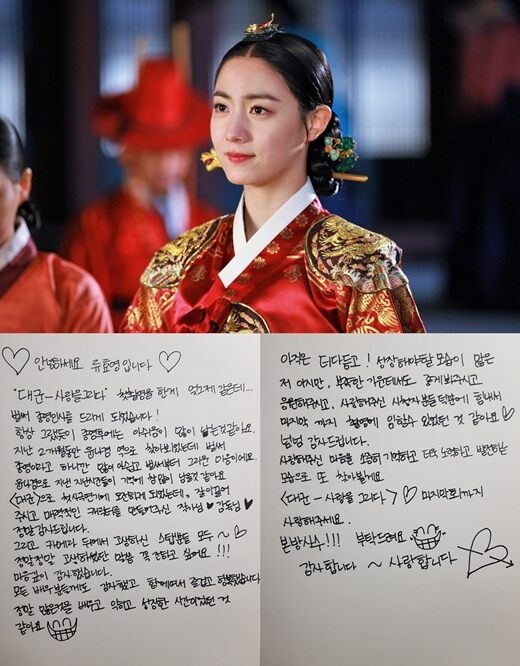 안녕하세요 류효영입니다
"대군-사랑을그리다" 첫촬영을 한게 엊그제 같은데...
벌써 종영인사를 드리게 되었습니다!
항상 그랬듯이 종영후에는 아쉬움이 많이 남는것같아요.
지난 2개월동안 윤나겸 역으로 찾아뵈었는데 벌써
종영이라고 하니깐 많이 아쉽고 벌써부터 그리운 마음이에요.
윤나겸으로 지낸 지난시간들이 기억에 참 많이 남을것 같아요
<대군>으로 첫사극연기에 도전하게 되었는데, 잘이끌어
주시고 매력적인 캐릭터를 만들어주신 작가님 감독님
정말 감사드립니다.
그리고 카메라 뒤에서 고생하신 스탭분들 모두 ~
정말정말 고생하셨단 말씀 꼭 전하고 싶어요!!!
마음깊이 감사했습니다.
모든 배우분들께도 감사했고 함께여서 즐겁고 행복했습니다
정말 많은것을 배우고 익히고 성장한 시간이었던 것
같아요
아직은 더다듬고! 성장해야할 모습이 많은
저 이지만, 부족한 가운데에도 좋게봐주시고
응원해주시고, 사랑해주신 시청자분들 덕분에 힘내서
마지막 까지 촬영에 임할수 있었던 것 같아요
넘넘 감사드립니다.
사랑해주신 마음들 소중히 기억하고 더욱 노력하고 발전한
모습으로 또 찾아뵐게요
<대군-사랑을 그리다> 마지막회까지
사랑해주세요.
본방사수!!! 부탁드려요
감사합니다 ~ 사랑합니다